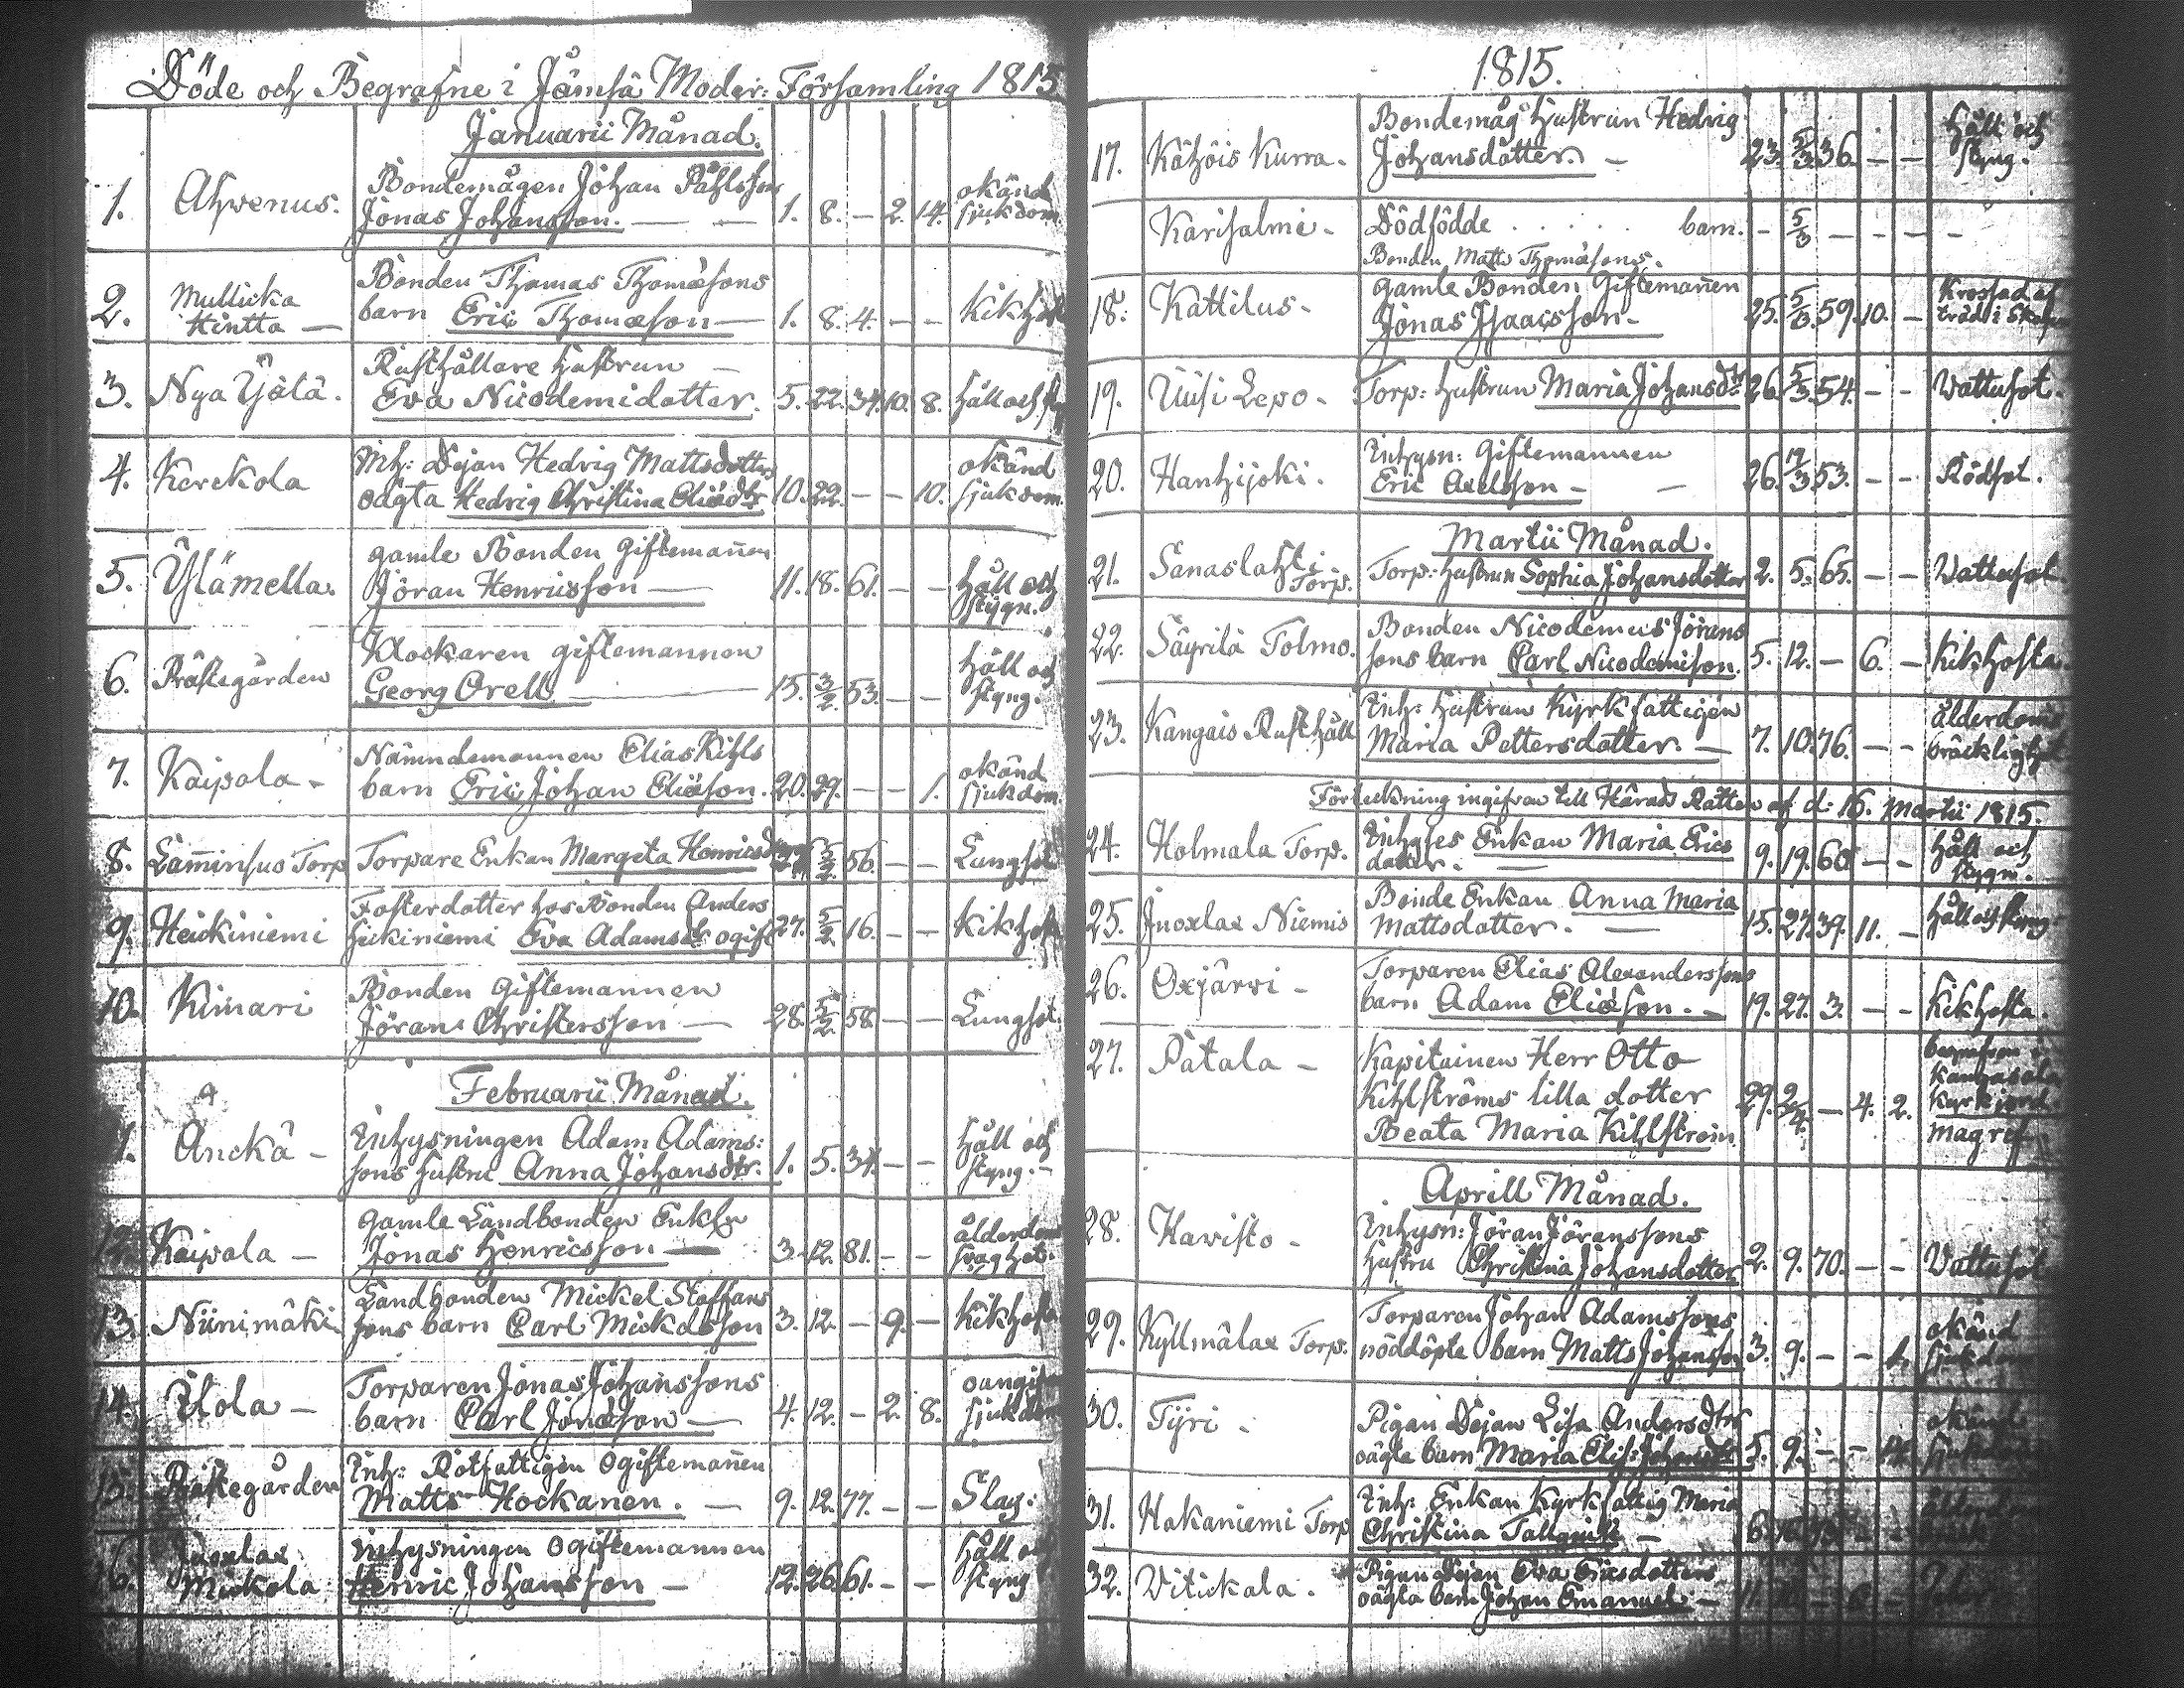 Döde och Begrafne i Jämsä Moder: Församling 1815
Januarii Månad.
1. Ahvenus. Bondemågen Johan Påhlssons okänd
Jonas Johansson. — — 1. 8. — 2. 14. sjukdom
2. Mullicka Bonden Thomas Thomæsons
Hintta — barn Eric Thomæson — 1. 8. 4. — — Kikhosta
3. Nya Ijälä. Rusthållare hustrun —
Eva Nicodemidotter. 5. 22. 34. 10. 8. håll och
4. Kerckola Inh: Pejan Hedrig Mattsdotters okänd
oägta Hedvig Christina Eliædtr 10. 22. — — 10. sjukdom.
5. Ylämella. gamle Bonden giftemannen
Jöran Henricsson — 11. 18. 61. — — håll och
stygn.
6. Prästegården Klockaren giftemannen håll och
Georg Orell — 15. 3/2. 53. — — styng.
7. Kaipola — Nämndemannen Elias Kihls okänd
barn Eric Johan Eliæson. 20. 29. — — 1. sjukdom.
8. Lamminsuo Torp Torpare Enkan Margeta Henricsdotter 5/2. 56. — — Lungsot
9. Heickiniemi Fosterdotter hos Bonden Anders
heickiniemi Eva Adamsdr ogift 27. 5/2. 16. — — Kikhosta
10. Kimari Bonden Giftemannen
Jöran Christersson — 28. 5/2. 58. — — Lungsot.
Februarii Månad.
11. Anckä — Inhysningen Adam Adams: håll och
sons hustru Anna Johansdtr. 1. 5. 34. — — styng. —
12. Kaipola — gamle Landbonden Enkln ålderdoms
Jonas Henricsson — 3. 12. 81. — — svaghet.
13. Niinimäki Landbonden Mickel Staffans
sons barn Carl Mickelsson 3. 12. — 9. — Kikhosta
14. Torparen Jonas Johanssons
Utola — barn Carl Jonæson — 4. 12. — 2. 8. sjukdom
15. Prästegården Inh: Rotfattigen Ogiftemannen
Matts Hockanen. — 9. 12. 77. — — Slag.
16. Juoxlax Inhysningen Ogiftemannen håll och
Mickola Henric Johansson — 12. 26. 61. — — styng
1815.
17. Kähöis Kurra. Bondemåg hustrun Hedvig håll och
Johansdotter. — 23. 5/3. 36. — — styng.
Karisalmi — Dödfödde . . . . . barn. — 5/3 — — — —
Bonden Matts Thomæsons.
18. Kattilus — gamle Bonden Giftemannen Krossad af
Jonas Isaacsson — 25. 5/3. 59. 10. — träd i Skogen
19. Uusi Lepo — Torp: hustrun Maria Johansdtr 26. 5/3. 54. — — Wattusot.
20. Hanhijoki. Inhysn: Giftemannen
Eric Axelsson — — 26. 19/3 53. — — Rödsot.
Martii Månad.
21. Sanaslahti Torp. Torp: hustrun Sophia Johansdotter 2. 5. 65. — — Wattusot
22. Säyrilä Tolmo. Bonden Nicodemus Jörans
sons barn Carl Nicodemison. 5. 12. — 6. — Kikhosta
23. Kangais Rusthåll Inh: hustrun Kyrkfattigen ålderdoms
Maria Pettersdotter. — 7. 10. 76. — — bräcklighet
Förteckning ingifvan till Härads Rätten af d: 16. Martii 1815.
24. Holmala Torp. Inhyses Enkan Maria Erics håll och
dotter. — 9. 19. 60 — — stygn.
25. Juoxlax Niemis Bonde Enkan Anna Maria
Mattsdotter. — 15. 27. 39. 11. — håll och styng
26. Oxjärvi — Torparen Elias Alexanderssons
barn Adam Eliæson. — 19. 27. 3. — — Kikhosta.
27. Patala — Kapitainen Herr Otto
Kihlströms lilla dotter Kangasala
Beata Maria Kihlström 29. 2/4. — 4. 2. Kyrkjord
Magref
Aprill Månad.
28. Havisto — Inhysn: Jöran Jöranssons
hustru Christina Johansdotter 2. 9. 70. — — Vattusot
29. Kyllmälax Torp. Torparen Johan Adamssons okänd
nöddöpte barn Matts Johansson 3. 9. — — sjukdom
30. Tyri — Pigan Pejan Lisa Andersdtrs okänd
oägta barn Maria Elis: Johansdtr 5. 9. — —
31. Hakaniemi Torp Inh: Enkan Kyrkfattig Maria
Christina Tallqvist — 6.
32. Vitickala. Pigan Pejan Eva Ericsdotters
oägta barn Johan Emanuel — 11.